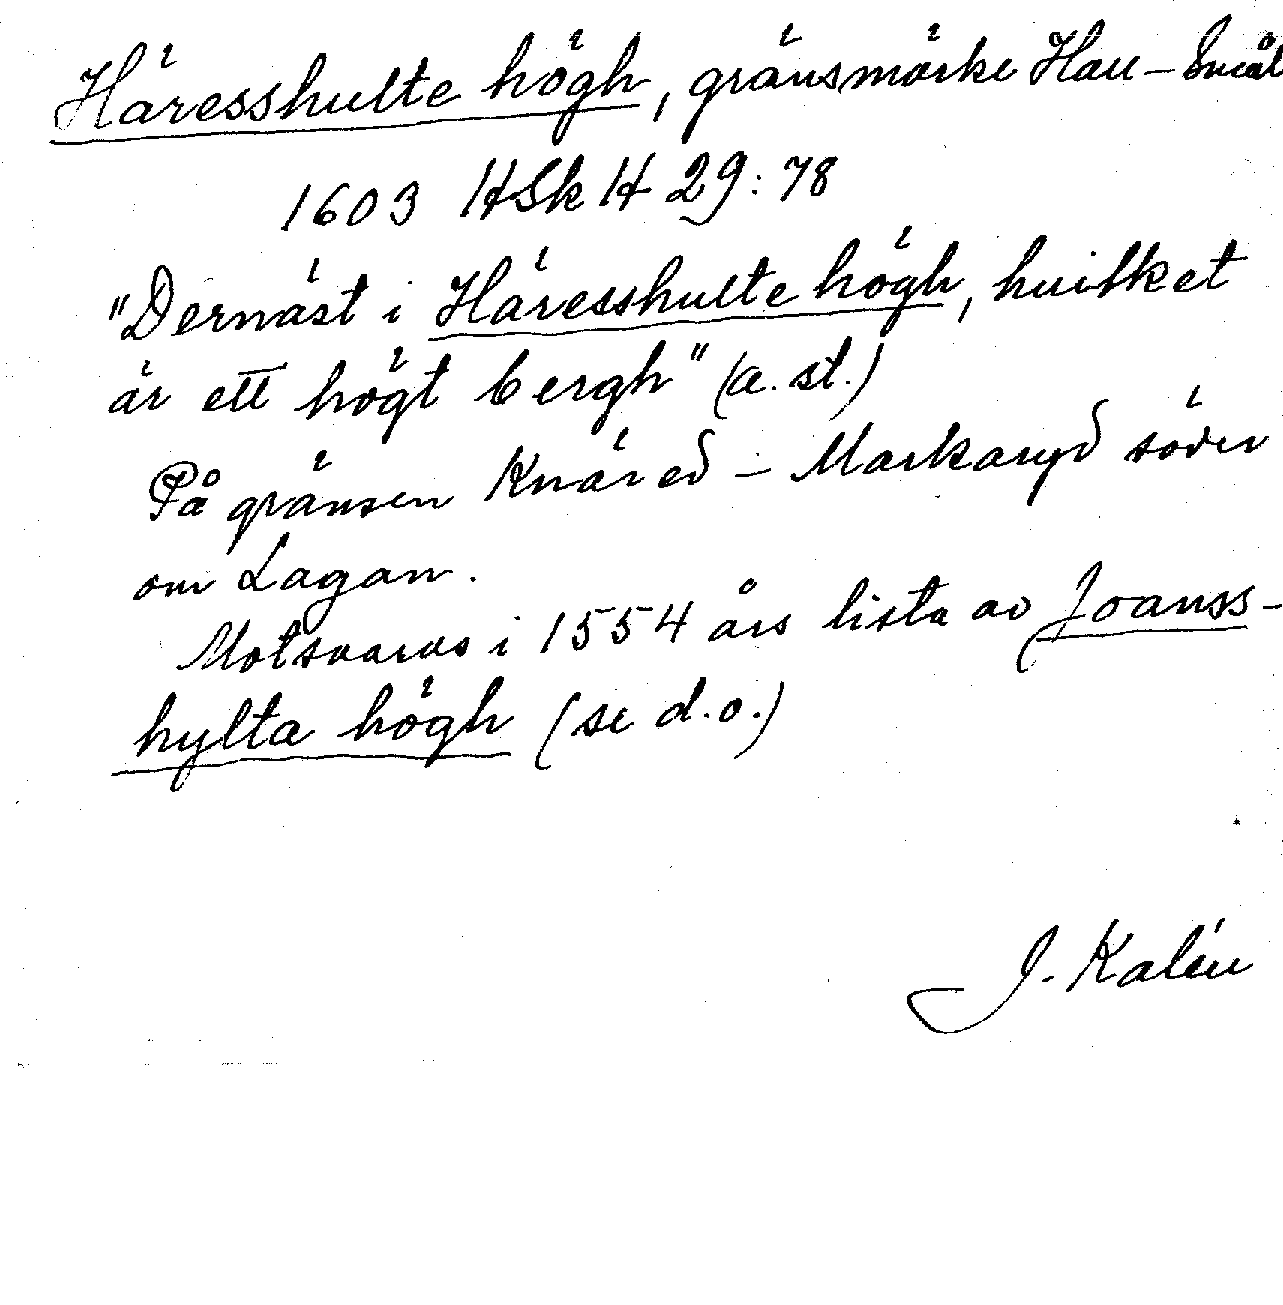 Häresshulte högh, gränsmärke Hall – Smål
1603 HSkH 29:78
"Dernäst i Häresshulte högh, huilket
är ett högt bergh" (a. st.)
På gränsen Knäred – Markaryd söder
om Lagan.
Motsvaras i 1554 års lista av Joanss-
hylta högh (se d.o.)
J. Kalén